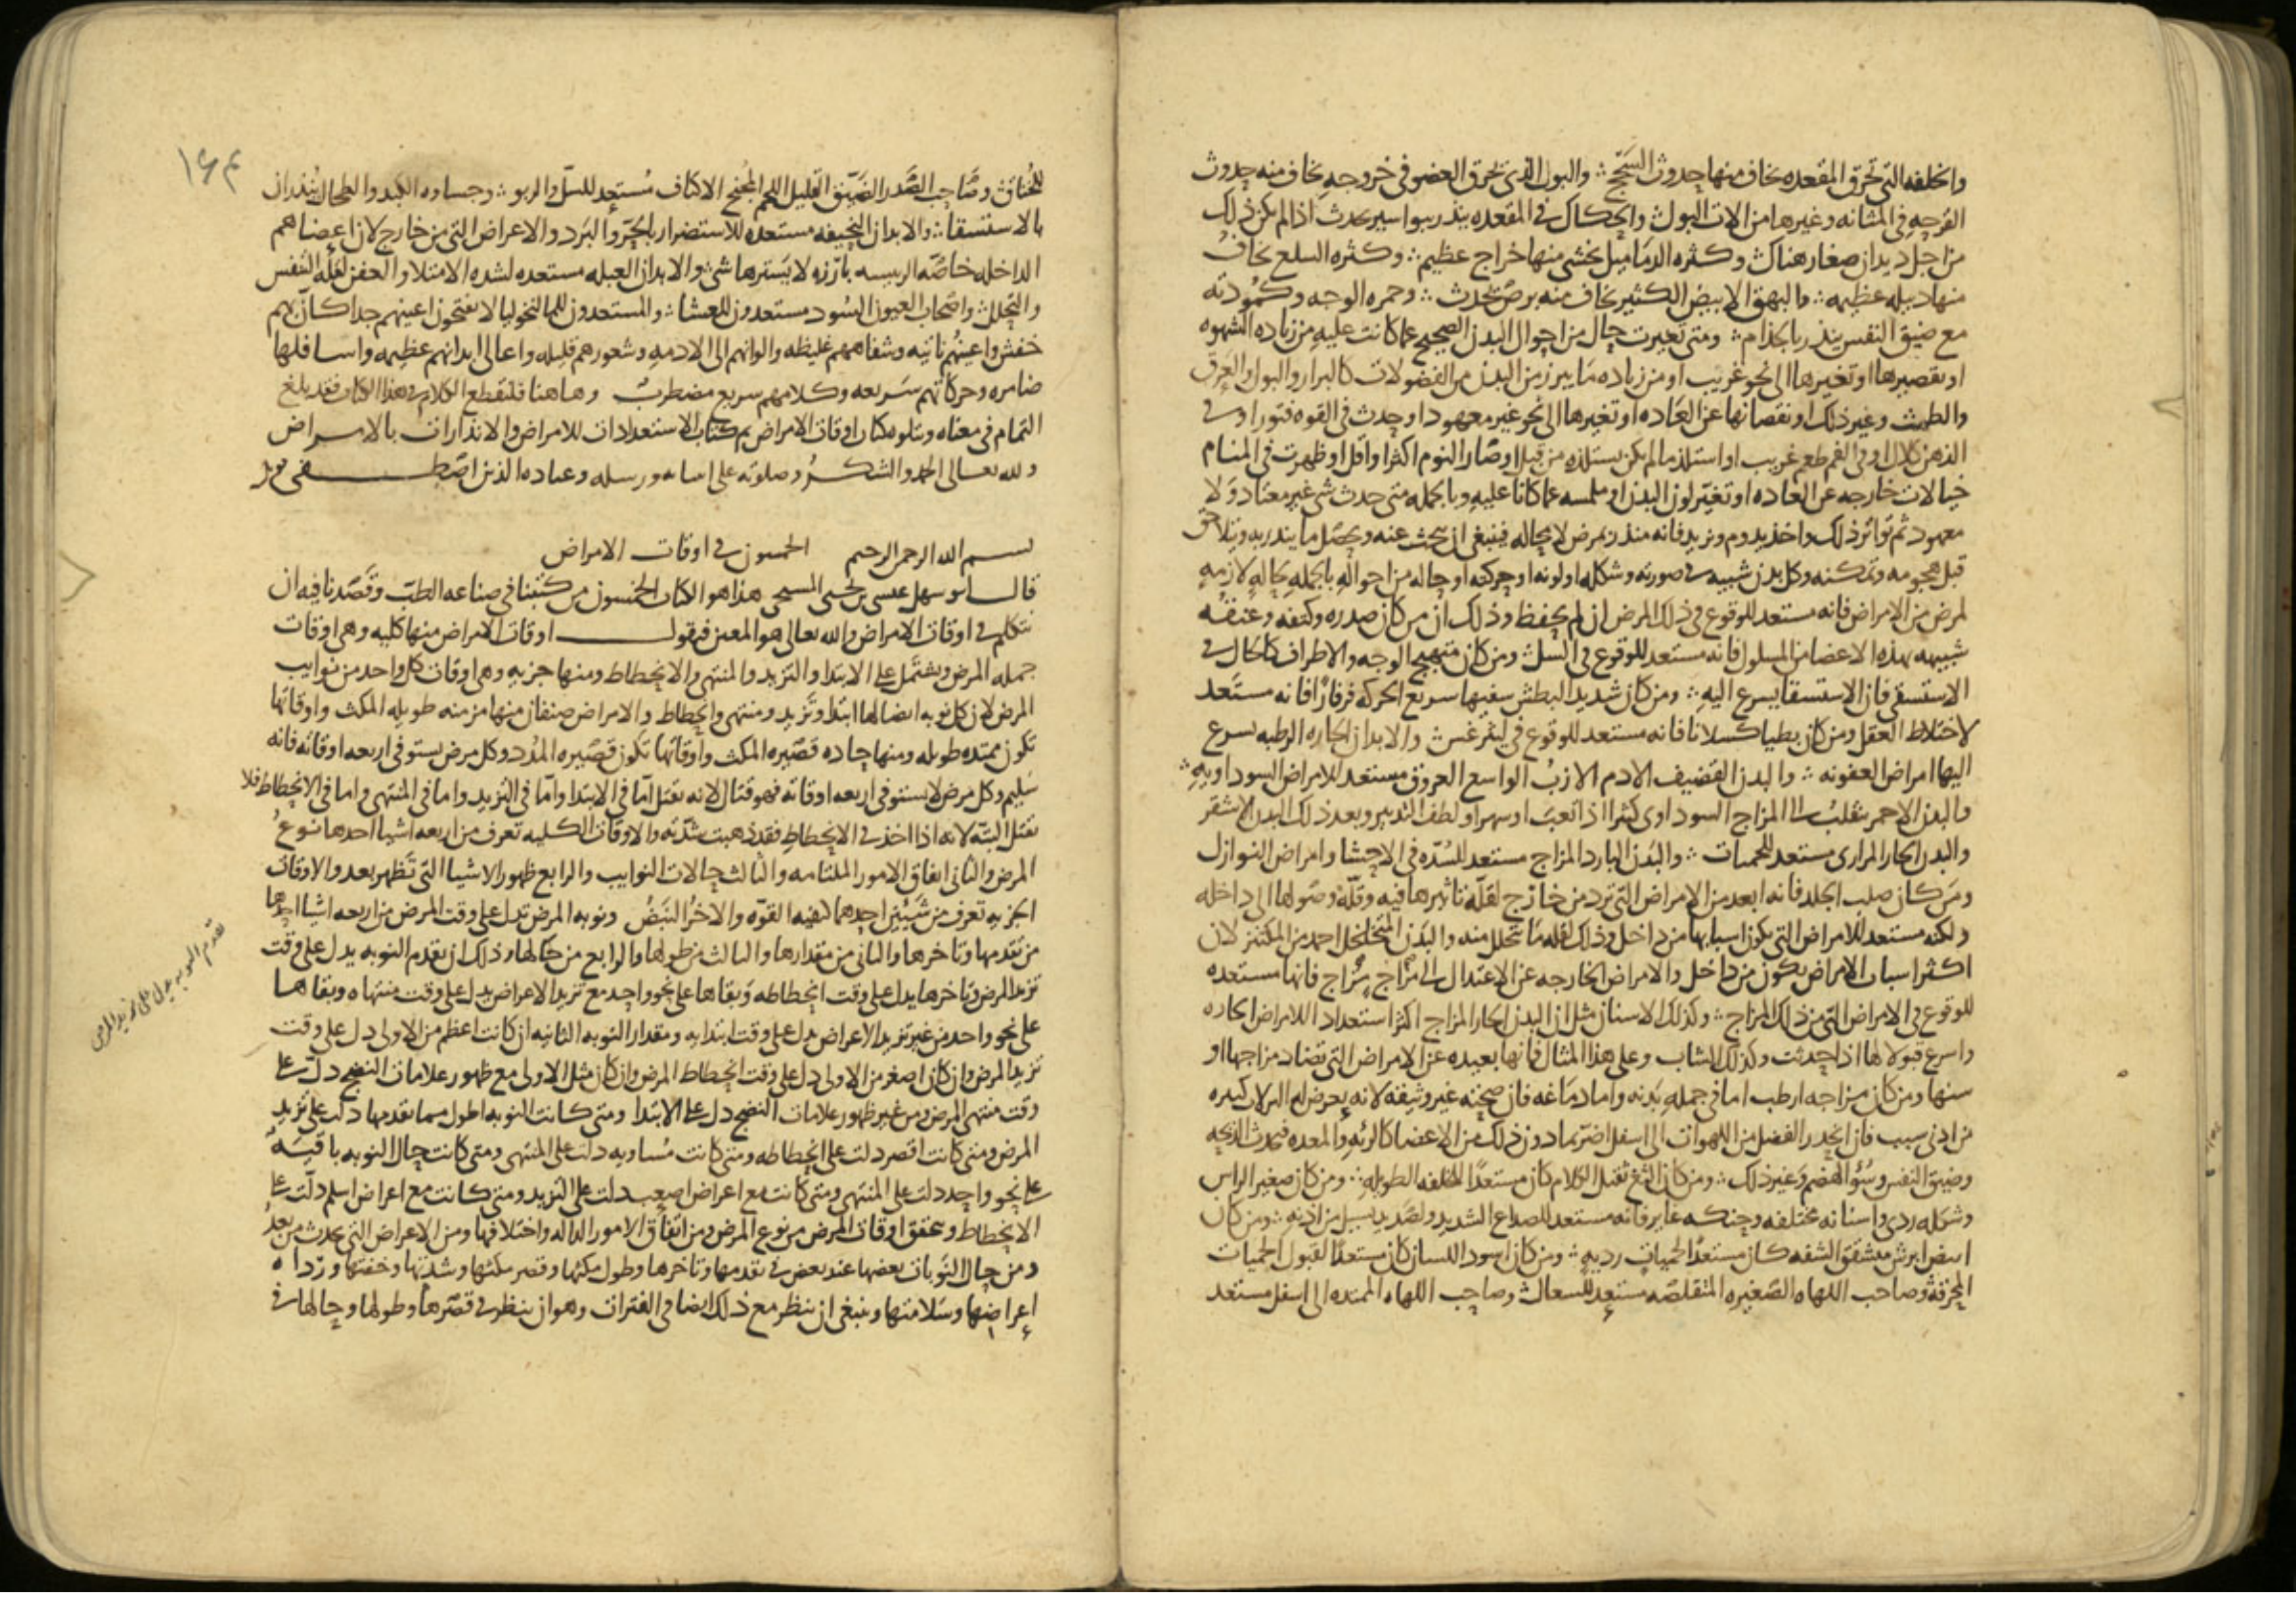 والخلفه التى تحرق المقعده يخاف منها حدوث السحج ۞ والبول الذى يحرق العضو فى خروجه يخاف منه حدوث
القرحه فى المثانه وغيرها من الات البول ۞ والحكاك فى المقعده ينذر ببواسير تحدث اذا لم يكن ذلك
من اجل ديدان صغار هناك ۞ وكثره الدماميل يخشى منها خراج عظيم ۞ وكثره السلع يخاف
منها دبيله عظيمه ۞ والبهق الابيض الكثير يخاف منه برص يحدث ۞ وحمره الوجه وكمودته
مع ضيق النفس ينذر بالجذام ۞ ومتى تغيرت حال من احوال البدن الصحيح عما كانت عليه من زياده الشهوه
او تقصيرها او تغيرها الى نحو غريب او من زياده ما يبرز من البدن من الفضولات كالبراز والبول والعرق
والطمث وغير ذلك او نقصانها عن العاده او تغيرها الى نحو غير معهود او حدث فى القوه فتور او فى
الذهن كلال او فى الفم طعم غريب او استلذ ما لم يكن يستلذه من قبل او صار النوم اكثر او اقل او ظهرت فى المنام
خيالات خارجه عن العاده او تغير لون البدن او ملمسه عما كانا عليه وبالجمله متى حدث شى غير معتاد ولا
معهود ثم تواتر ذلك واخذ يدوم ويزيد فانه منذر بمرض لا محاله فينبغى ان يبحث عنه ويحصل ما ينذر به ويتلاحق
قبل هجومه وتمكنه وكل بدن شبيه فى صورته وشكله او لونه او حركته او حاله من احواله بالجمله بحاله لازمه
لمرض من الامراض فانه مستعد للوقوع فى ذلك المرض ان لم يحفظ وذلك ان من كان صدره وكتفه وعنقه
شبيهه بهذه الاعضا من المسلول فانه مستعد للوقوع فى السل ۞ ومن كان متهيج الوجه والاطراف كالحال فى
الاستسقى فان الاستسقا يسرع اليه ۞ ومن كان شديد البطش سفيها سريع الحركه فانه مستعد
لاختلاط العقل ومن كان بطيا كسلانا فانه مستعد للوقوع فى ليثرغس ۞ والابدان الحاره الرطبه يسرع
اليها امراض العفونه ۞ والبدن القضيف الادم الازب الواسع العروق مستعد للامراض السوداويه ۞
والبدن الاحمر ينقلب الى المزاج السوداوى كثيرا اذا تعب او سهر او لطف التدبير وبعد ذلك البدن الاشقر
والبدن الحار المرارى مستعد للحميات ۞ والبدن البارد المزاج مستعد للسدّه فى الاحشا وامراض النوازل
ومن كان صلب الجلد فانه ابعد من الامراض التى ترد من خارج لقله تاثيرها فيه وقله وصولها الى داخله
ولكنه مستعد للامراض التى يكون اسبابها من داخل وذلك لقله ما يتحلل منه والبدن المتخلخل احمد من المكتنز لان
اكثر اسباب الامراض يكون من داخل والامراض الخارجه عن الاعتدال الى مزاج مزاج فانها مستعده
للوقوع فى الامراض التى من ذلك المزاج ۞ وكذلك الاسنان مثل ان البدن الحار المزاج اكثر استعدادا للامراض الحاره
واسرع قبولا لها اذا حدثت وكذلك الشاب وعلى هذا المثال فانها بعيده عن الامراض التى تضاد مزاجها او
سنها ومن كان مزاجه ارطب اما فى جمله بدنه واما دماغه فان صحته غير وثيقه لانه يعرض له النزلات كثيره
من ادنى سبب فان انحدر الفضل من اللهوات الى اسفل اضر بما دون ذلك من الاعضا كالرئه والمعده فيحدث
وضيق النفس وسؤ الهضم وغير ذلك ۞ ومن كان الثغ ثقيل الكلام كان مستعدا للخلفه الطويله ۞ ومن كان صغير الراس
وشكله ردى واسنانه مختلفه وحنكه غاير فانه مستعد للصداع الشديد ولصديد يسيل من اذنه ۞ ومن كان
ابيض ابرش متشقق الشفه كان مستعدا لحميات رديه ۞ ومن كان اسود اللسان كان مستعدا لقبول الحميات
المحرقة وصاحب اللهاه الصغيره المتقلصه مستعد للسعال ۞ وصاحب اللهاه الممتده الى اسفل مستعد
١٦٣
للخناق ۞ وصاحب الصدر الضيق القليل اللحم المجنح الاكتاف مستعد للسل والربو ۞ وجساوه الكبد والطحال ينذران
بالاستسقا ۞ والابدان النحيفه مستعده للاستضرار بالحر والبرد والاعراض التى من خارج لان اعضاهم
الداخله خاصه الرييسه بارزه لا يسترها شى ۞ والابدان العبله مستعده لشده الامتلا والعفن لقله التنفس
والتحلل ۞ واصحاب العيون السود مستعدون للعشا ۞ والمستعدون للمالنخوليا لا يفتحون اعينهم جدا كان بهم
خفش واعينهم ناتيه وشفاههم غليظه والوانهم الى الادمه وشعورهم قليله واعالى ابدانهم عظيمه واسافلها
ضامره وحركاتهم سريعه وكلامهم سريع مضطرب وهاهنا فلنقطع الكلام فى هذا الكتاب فقد بلغ
التمام فى معناه ويتلوه كتاب اوقات الامراض تم كتاب الاستعدادات للامراض والانذارات بالامراض
ولله تعالى الحمد والشكر وصلوته على انبيائه ورسله وعباده الذين اصطفى
بسم الله الرحمن الرحيم الخمسون فى اوقات الامراض
قال ابو سهل عيسى بن يحيى المسيحى هذا هو الكتاب الخمسون من كتبنا فى صناعه الطب وقصدنا فيه ان
نتكلم فى اوقات الامراض والله تعالى هو المعين فنقول اوقات الامراض منها كليه وهى اوقات
جمله المرض ويشتمل على الابتدا والتزيد والمنتهى والانحطاط ومنها جزيه وهى اوقات كل واحد من نوايب
المرض لان كل نوبه ايضا لها ابتدا وتزيد ومنتهى وانحطاط والامراض صنفان منها مزمنه طويله المكث واوقاتها
تكون ممتده طويله ومنها حاده قصيره المكث واوقاتها تكون قصيره المدد وكل مرض يستوفى اربعه اوقاته فانه
سليم وكل مرض لا يستوفى اربعه اوقاته فهو قتال لانه يقتل اما فى الابتدا واما فى التزيد واما فى المنتهى واما فى الانحطاط فلا
يقتل البته لانه اذا اخذ فى الانحطاط فقد ذهبت شدته والاوقات الكليه تعرف من اربعه اشيا احدها نوع
المرض والثانى اتفاق الامور الملتامه والثالث حالات النوايب والرابع ظهور الاشيا التى تظهر بعد والاوقات
الجزيه تعرف من شيئين احدهما كيفيه القوّه والاخر النبض ونوبه المرض تدل على وقت المرض من اربعه اشيا احدها
من تقدمها وتاخرها والثانى من مقدارها والثالث من طولها والرابع من حالها وذلك ان تقدم النوبه يدل على وقت
تزيد المرض وتاخرها يدل على وقت انحطاطه وبقاها على نحو واحد مع تزيد الاعراض يدل على وقت منتهاه وبقاها
على نحو واحد من غير تزيد الاعراض يدل على وقت ابتدايه ومقدار النوبه الثانيه ان كانت اعظم من الاولى دل على وقت
تزيد المرض وان كان اصغر من الاولى دل على وقت انحطاط المرض وان كان مثل الاولى مع ظهور علامات النضج دل على
وقت منتهى المرض ومن غير ظهور علامات النضج دل على الابتدا ومتى كانت النوبه اطول مما تقدمها دلت على تزيد
المرض ومتى كانت اقصر دلت على انحطاطه ومتى كانت مساويه دلت على المنتهى ومتى كانت حال النوبه باقيه
على نحو واحد دلت على المنتهى ومتى كانت مع اعراض اصعب دلت على التزيد ومتى كانت مع اعراض اسلم دلت على
الانحطاط وتحقق اوقات المرض من نوع المرض ومن اتفاق الامور الداله واختلافها ومن الاعراض التى تحدث من بعد
ومن حال النوبات بعضها عند بعض فى تقدمها وتاخرها وطول مكثها وقصر مكثها وشدتها وخفتها ورداه
اعراضها وسلامتها وينبغى ان ينظر مع ذلك ايضا فى الفترات وهو ان ينظر فى قصرها وطولها وحالها فى
تقدم النوبه يدل على تزيد المرض